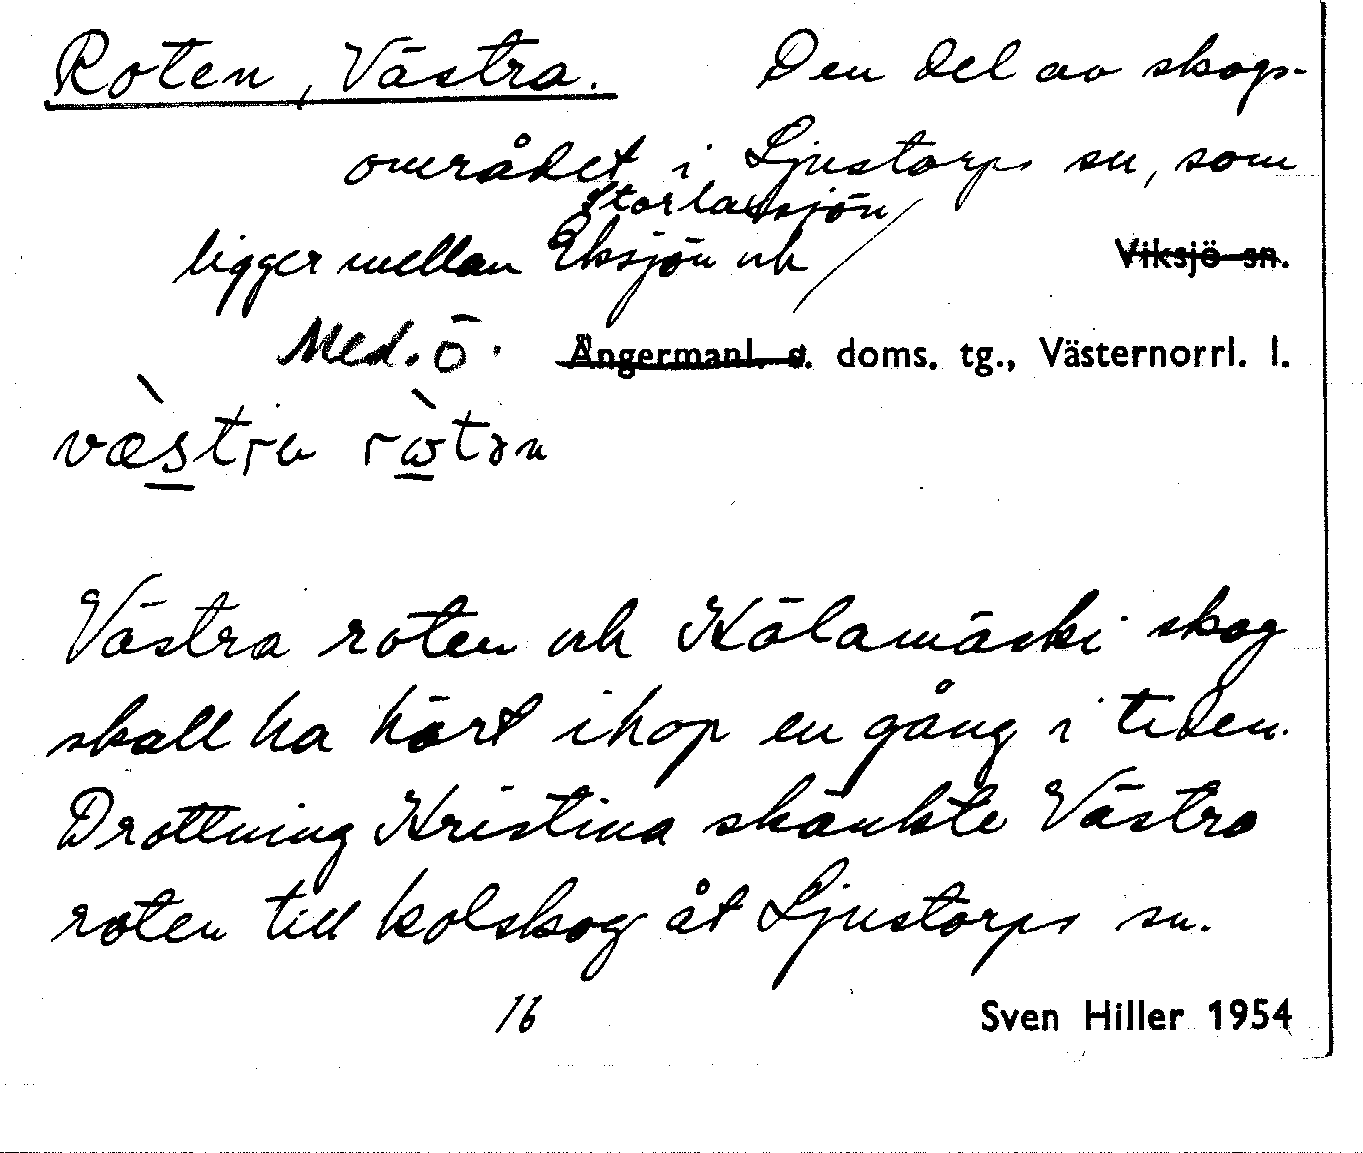 Roten, Västra. Den del av skogs-
området i Ljustorps sn, som
Storlaxsjön
ligger mellan Eksjön och / Viksjö sn.
Med. ö. Ångermanl. s. doms. tg., Västernorrl. l.
væ̀stra
Västra roten och Kälamäski skog
skall ha hört ihop en gång i tiden.
Drottning Kristina skänkte Västra
roten till kolskog åt Ljustorps sn.
16 Sven Hiller 1954